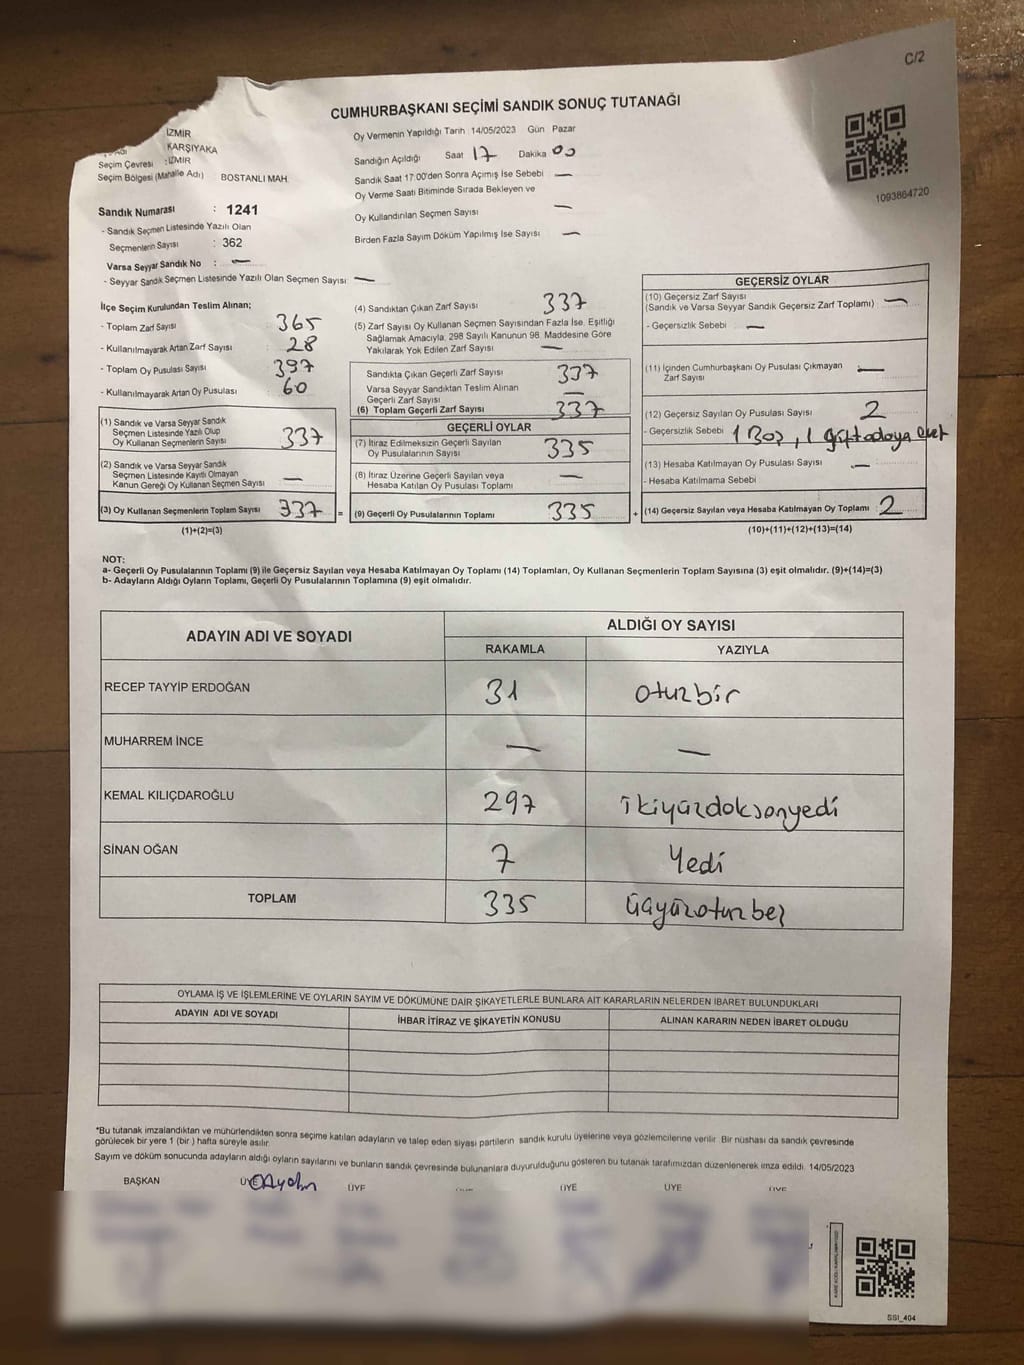 C/2
CUMHURBAŞKANI SEÇİMİ SANDIK SONUÇ TUTANAĞI
1093864720
İZMİR
KARŞIYAKA
Seçim Çevresi : İZMİR
Seçim Bölgesi (Mahalle Adı) BOSTANLI MAH.
Sandık Numarası : 1241
- Sandık Seçmen Listesinde Yazılı Olan
Seçmenlerin Sayısı : 362
Varsa Seyyar Sandık No : —
- Seyyar Sandık Seçmen Listesinde Yazılı Olan Seçmen Sayısı : —
Oy Vermenin Yapıldığı Tarih 14/05/2023 Gün Pazar
Sandığın Açıldığı Saat 17 Dakika 00
Sandık Saat 17:00'den Sonra Açımış İse Sebebi —
Oy Verme Saati Bitiminde Sırada Bekleyen ve
Oy Kullandırılan Seçmen Sayısı —
Birden Fazla Sayım Döküm Yapılmış İse Sayısı —
İlçe Seçim Kurulundan Teslim Alınan;
- Toplam Zarf Sayısı : 365
- Kullanılmayarak Artan Zarf Sayısı : 28
- Toplam Oy Pusulası Sayısı : 397
- Kullanılmayarak Artan Oy Pusulası : 60
(1) Sandık ve Varsa Seyyar Sandık
Seçmen Listesinde Yazılı Olup
Oy Kullanan Seçmenlerin Sayısı : 337
(2) Sandık ve Varsa Seyyar Sandık
Seçmen Listesinde Kayıtlı Olmayan
Kanun Gereği Oy Kullanan Seçmen Sayısı : —
(3) Oy Kullanan Seçmenlerin Toplam Sayısı : 337
(1)+(2)=(3)
(4) Sandıktan Çıkan Zarf Sayısı 337
(5) Zarf Sayısı Oy Kullanan Seçmen Sayısından Fazla İse, Eşitliği
Sağlamak Amacıyla, 298 Sayılı Kanunun 98. Maddesine Göre
Yakılarak Yok Edilen Zarf Sayısı —
Sandıkta Çıkan Geçerli Zarf Sayısı 337
Varsa Seyyar Sandıktan Teslim Alınan
Geçerli Zarf Sayısı —
(6) Toplam Geçerli Zarf Sayısı 337
GEÇERLİ OYLAR
(7) İtiraz Edilmeksizin Geçerli Sayılan
Oy Pusulalarının Sayısı 335
(8) İtiraz Üzerine Geçerli Sayılan veya
Hesaba Katılan Oy Pusulası Toplamı —
= (9) Geçerli Oy Pusulalarının Toplamı 335
GEÇERSİZ OYLAR
(10) Geçersiz Zarf Sayısı
(Sandık ve Varsa Seyyar Sandık Geçersiz Zarf Toplamı) —
- Geçersizlik Sebebi : —
(11) İçinden Cumhurbaşkanı Oy Pusulası Çıkmayan
Zarf Sayısı —
(12) Geçersiz Sayılan Oy Pusulası Sayısı 2
- Geçersizlik Sebebi : 1 Boş, 1
(13) Hesaba Katılmayan Oy Pusulası Sayısı : —
- Hesaba Katılmama Sebebi
+ (14) Geçersiz Sayılan veya Hesaba Katılmayan Oy Toplamı : 2
(10)+(11)+(12)+(13)=(14)
NOT:
a- Geçerli Oy Pusulalarının Toplamı (9) ile Geçersiz Sayılan veya Hesaba Katılmayan Oy Toplamı (14) Toplamları, Oy Kullanan Seçmenlerin Toplam Sayısına (3) eşit olmalıdır. (9)+(14)=(3)
b- Adayların Aldığı Oyların Toplamı, Geçerli Oy Pusulalarının Toplamına (9) eşit olmalıdır.
ADAYIN ADI VE SOYADI
ALDIĞI OY SAYISI
RAKAMLA YAZIYLA
RECEP TAYYİP ERDOĞAN 31 oturbir
MUHARREM İNCE — —
KEMAL KILIÇDAROĞLU 297 ikiyüzdoksanyedi
SİNAN OĞAN 7 Yedi
TOPLAM 335 üçyüzotuzbeş
OYLAMA İŞ VE İŞLEMLERİNE VE OYLARIN SAYIM VE DÖKÜMÜNE DAİR ŞİKAYETLERLE BUNLARA AİT KARARLARIN NELERDEN İBARET BULUNDUKLARI
ADAYIN ADI VE SOYADI İHBAR İTİRAZ VE ŞİKAYETİN KONUSU ALINAN KARARIN NEDEN İBARET OLDUĞU
*Bu tutanak imzalandıktan ve mühürlendikten sonra seçime katılan adayların ve talep eden siyasi partilerin sandık kurulu üyelerine veya gözlemcilerine verilir. Bir nüshası da sandık çevresinde
görülecek bir yere 1 (bir) hafta süreyle asılır.
Sayım ve döküm sonucunda adayların aldığı oyların sayılarını ve bunların sandık çevresinde bulunanlara duyurulduğunu gösteren bu tutanak tarafımızdan düzenlenerek imza edildi. 14/05/2023
BAŞKAN ÜYE ÜYE ÜYE ÜYE ÜYE
SSI_404